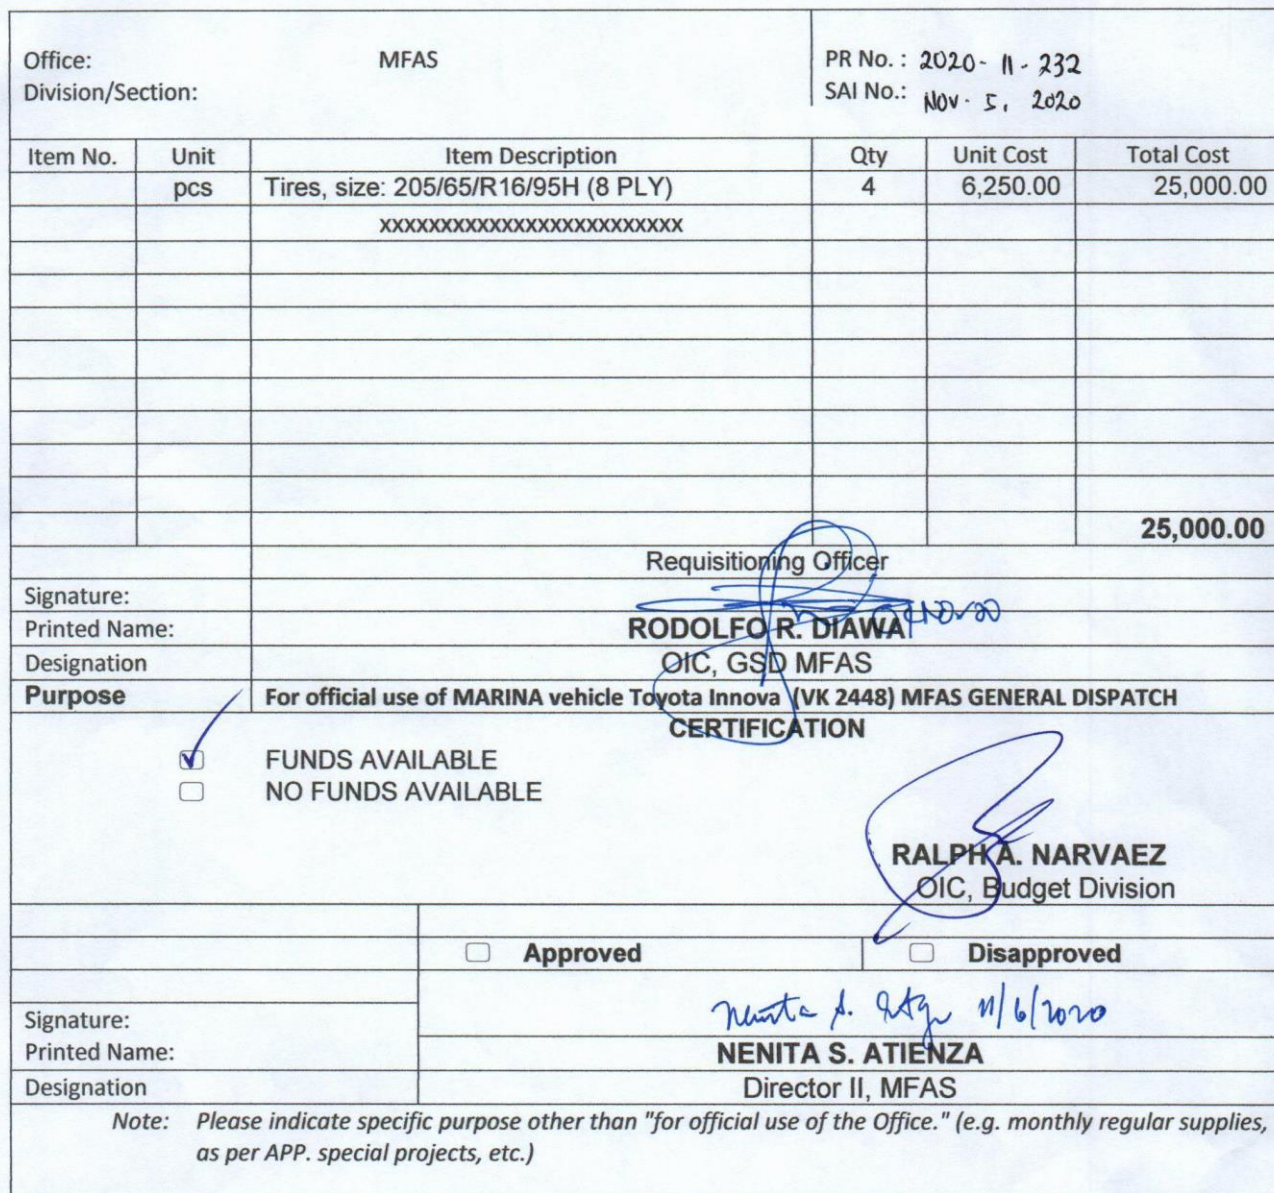 Office: MFAS PR No. : 2020-11-232
Division/Section: SAI No.: NOV. 5, 2020
Item No. Unit Item Description Qty Unit Cost Total Cost
pcs Tires, size: 205/65/R16/95H (8 PLY) 4 6,250.00 25,000.00
xxxxxxxxxxxxxxxxxxxxxxxxx
25,000.00
Requisitioning Officer
Signature:
Printed Name: RODOLFO R. DIAWA
Designation OIC, GSD MFAS
Purpose For official use of MARINA vehicle Toyota Innova (VK 2448) MFAS GENERAL DISPATCH
CERTIFICATION
FUNDS AVAILABLE
NO FUNDS AVAILABLE
RALPH A. NARVAEZ
OIC, Budget Division
Approved Disapproved
Signature: 11/6/2020
Printed Name: NENITA S. ATIENZA
Designation Director II, MFAS
Note: Please indicate specific purpose other than "for official use of the Office." (e.g. monthly regular supplies,
as per APP. special projects, etc.)